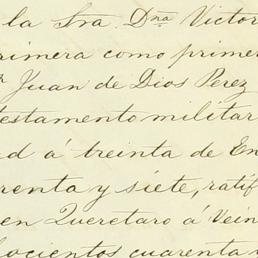 la Sra. Dña Victor
primera como primer
r Juan de Dios Perez
testamento militar
ad á treinta de En
renta y siete, ratif
en Queretaro á Vein
hocientos cuarenta